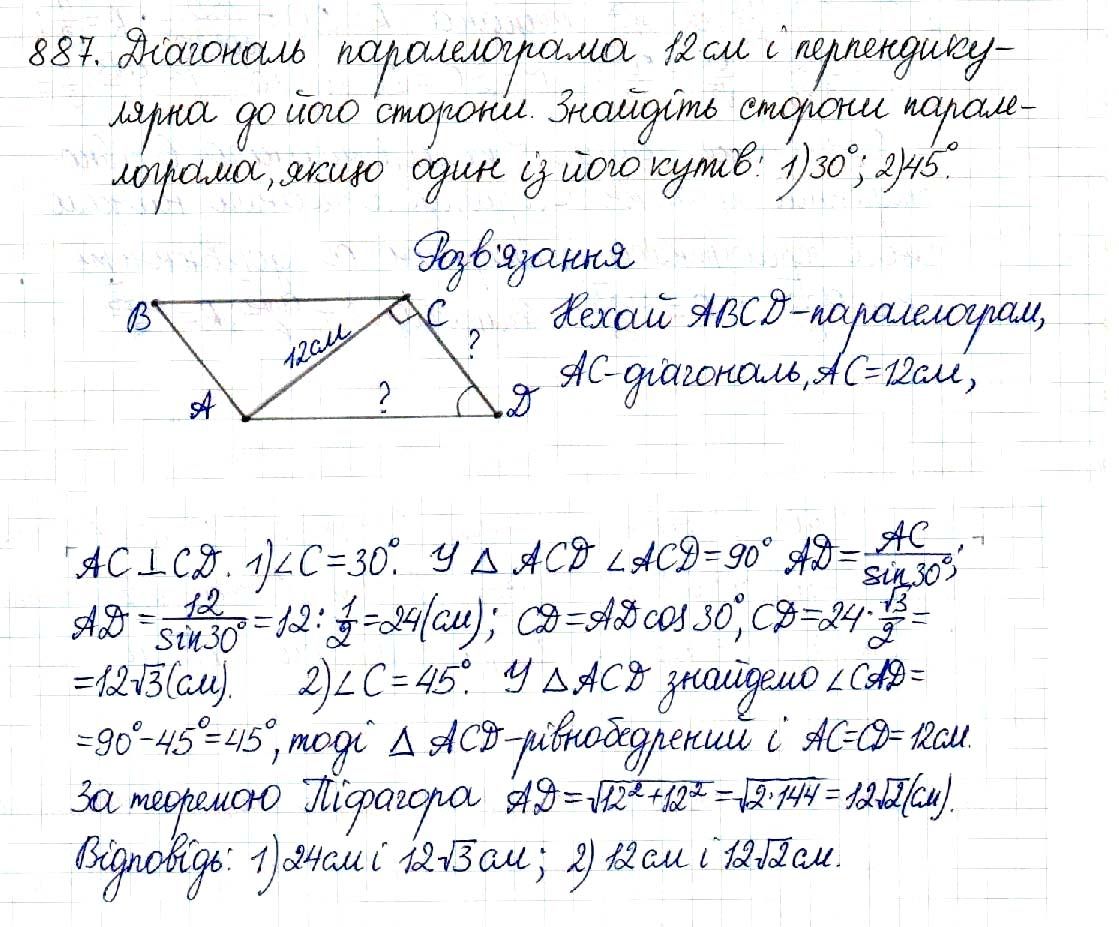 887. Діагональ паралелограма 12 см і перпендику-
лярна до його сторони. Знайдіть сторони парале-
лограма, якщо один із його кутів: 1) 30°; 2) 45°.
Розв'язання
B
C
12 см
?
?
A
D
Нехай ABCD - паралелограм,
AC - діагональ, AC = 12 см,
AC ⊥ CD. 1) ∠C = 30°. У △ ACD ∠ACD = 90° AD = AC/sin 30°;
AD = 12/sin 30° = 12 : 1/2 = 24 (см); CD = AD cos 30°, CD = 24 · √3/2 =
= 12√3 (см). 2) ∠C = 45°. У △ ACD знайдемо ∠CAD =
= 90° - 45° = 45°, тоді △ ACD - рівнобедрений і AC = CD = 12 см.
За теоремою Піфагора AD = √12² + 12² = √2 · 144 = 12√2 (см).
Відповідь: 1) 24 см і 12√3 см; 2) 12 см і 12√2 см.